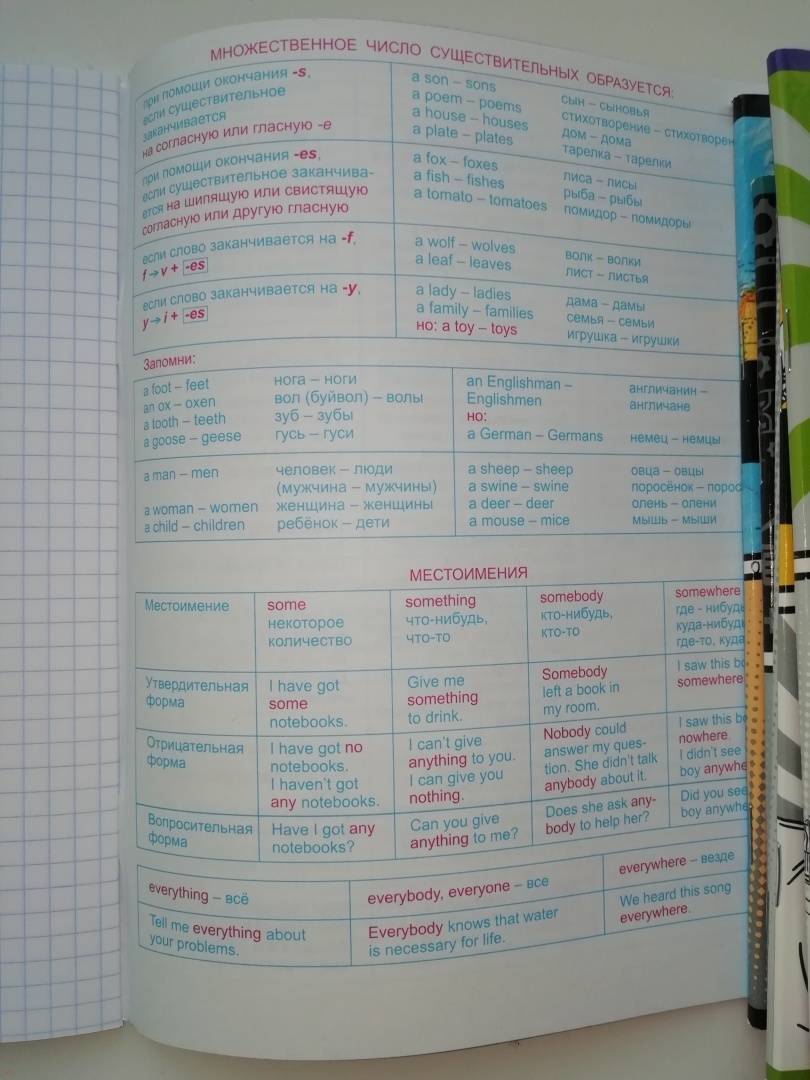 МНОЖЕСТВЕННОЕ ЧИСЛО СУЩЕСТВИТЕЛЬНЫХ ОБРАЗУЕТСЯ:
при помощи окончания -s,
если существительное
заканчивается
на согласную или гласную -e
a son – sons
a poem – poems
a house – houses
a plate – plates
сын – сыновья
стихотворение –
дом – дома
тарелка – тарелки
при помощи окончания -es,
если существительное заканчива-
ется на шипящую или свистящую
согласную или другую гласную
a fox – foxes
a fish – fishes
a tomato – tomatoes
лиса – лисы
рыба – рыбы
помидор – помидоры
если слово заканчивается на -f,
f→v + -es
a wolf – wolves
a leaf – leaves
волк – волки
лист – листья
если слово заканчивается на -y,
y→i + -es
a lady – ladies
a family – families
но: a toy – toys
дама – дамы
семья – семьи
игрушка – игрушки
Запомни:
a foot – feet
an ox – oxen
a tooth – teeth
a goose – geese
нога – ноги
вол (буйвол) – волы
зуб – зубы
гусь – гуси
an Englishman –
Englishmen
но:
a German – Germans
англичанин –
англичане
немец – немцы
a man – men
a woman – women
a child – children
человек – люди
(мужчина – мужчины)
женщина – женщины
ребёнок – дети
a sheep – sheep
a swine – swine
a deer – deer
a mouse – mice
овца – овцы
поросёнок –
олень – олени
мышь – мыши
МЕСТОИМЕНИЯ
Местоимение
some
некоторое
количество
something
что-нибудь,
что-то
somebody
кто-нибудь,
кто-то
somewhere
где - нибудь
куда-нибудь
где-то, куда
Утвердительная
форма
I have got
some
notebooks.
Give me
something
to drink.
Somebody
left a book in
my room.
I saw this
somewhere
Отрицательная
форма
I have got no
notebooks.
I haven't got
any notebooks.
I can't give
anything to you.
I can give you
nothing.
Nobody could
answer my ques-
tion. She didn't talk
anybody about it.
I saw this
nowhere.
I didn't see
boy
Вопросительная
форма
Have I got any
notebooks?
Can you give
anything to me?
Does she ask any-
body to help her?
Did you see
boy
everything – всё
everybody, everyone – все
everywhere – везде
Tell me everything about
your problems.
Everybody knows that water
is necessary for life.
We heard this song
everywhere.